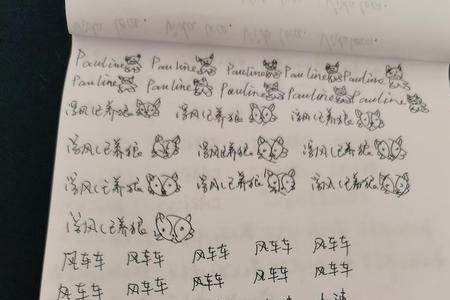 Pauline Pauline Pauline Pauline Pauline
Pauline Pauline Pauline Pauline Pauline
浮风(已养狼 浮风(已养狼 浮风(已养狼
浮风(已养狼 浮风(已养狼 浮风(已养狼
浮风(已养狼 浮风(已养狼 浮风(已养狼
浮风(已养狼
风车车 风车车 风车车 风车车 风车车
风车车 风车车 风车车 风车车 风车车